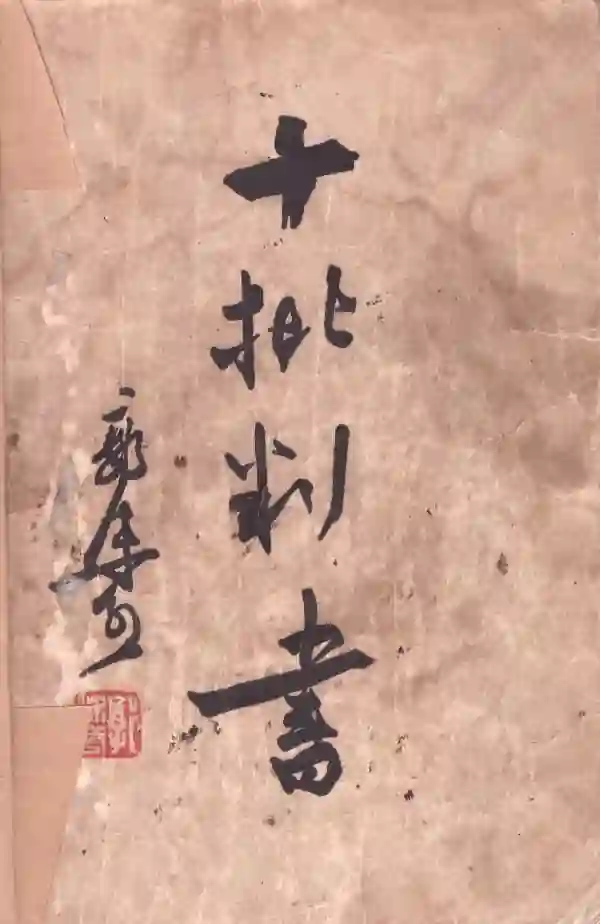 十批判書
郭沫若